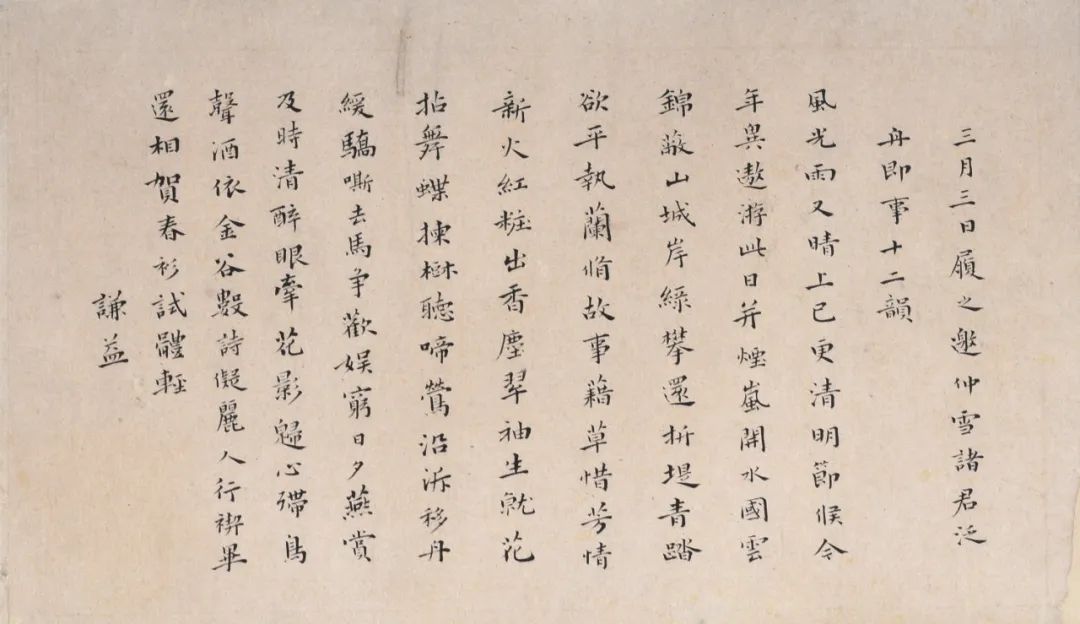 三月三日履之邀仲雪諸君泛
舟即事十二韻
風光雨又晴上巳更清明節候今
年異遨游此日并煙嵐開水國雲
錦蔽山城岸綠攀還折堤青踏
欲平執蘭脩故事藉草惜芳情
新火紅粧出香塵翠袖生就花
拈舞蝶揀樹聽啼鶯沿泝移舟
緩驕嘶去馬爭歡娱窮日夕燕賞
及時清醉眼牽花影歸心殢鳥
聲酒依金谷數詩儗麗人行禊畢
還相賀春衫試體輕
謙益